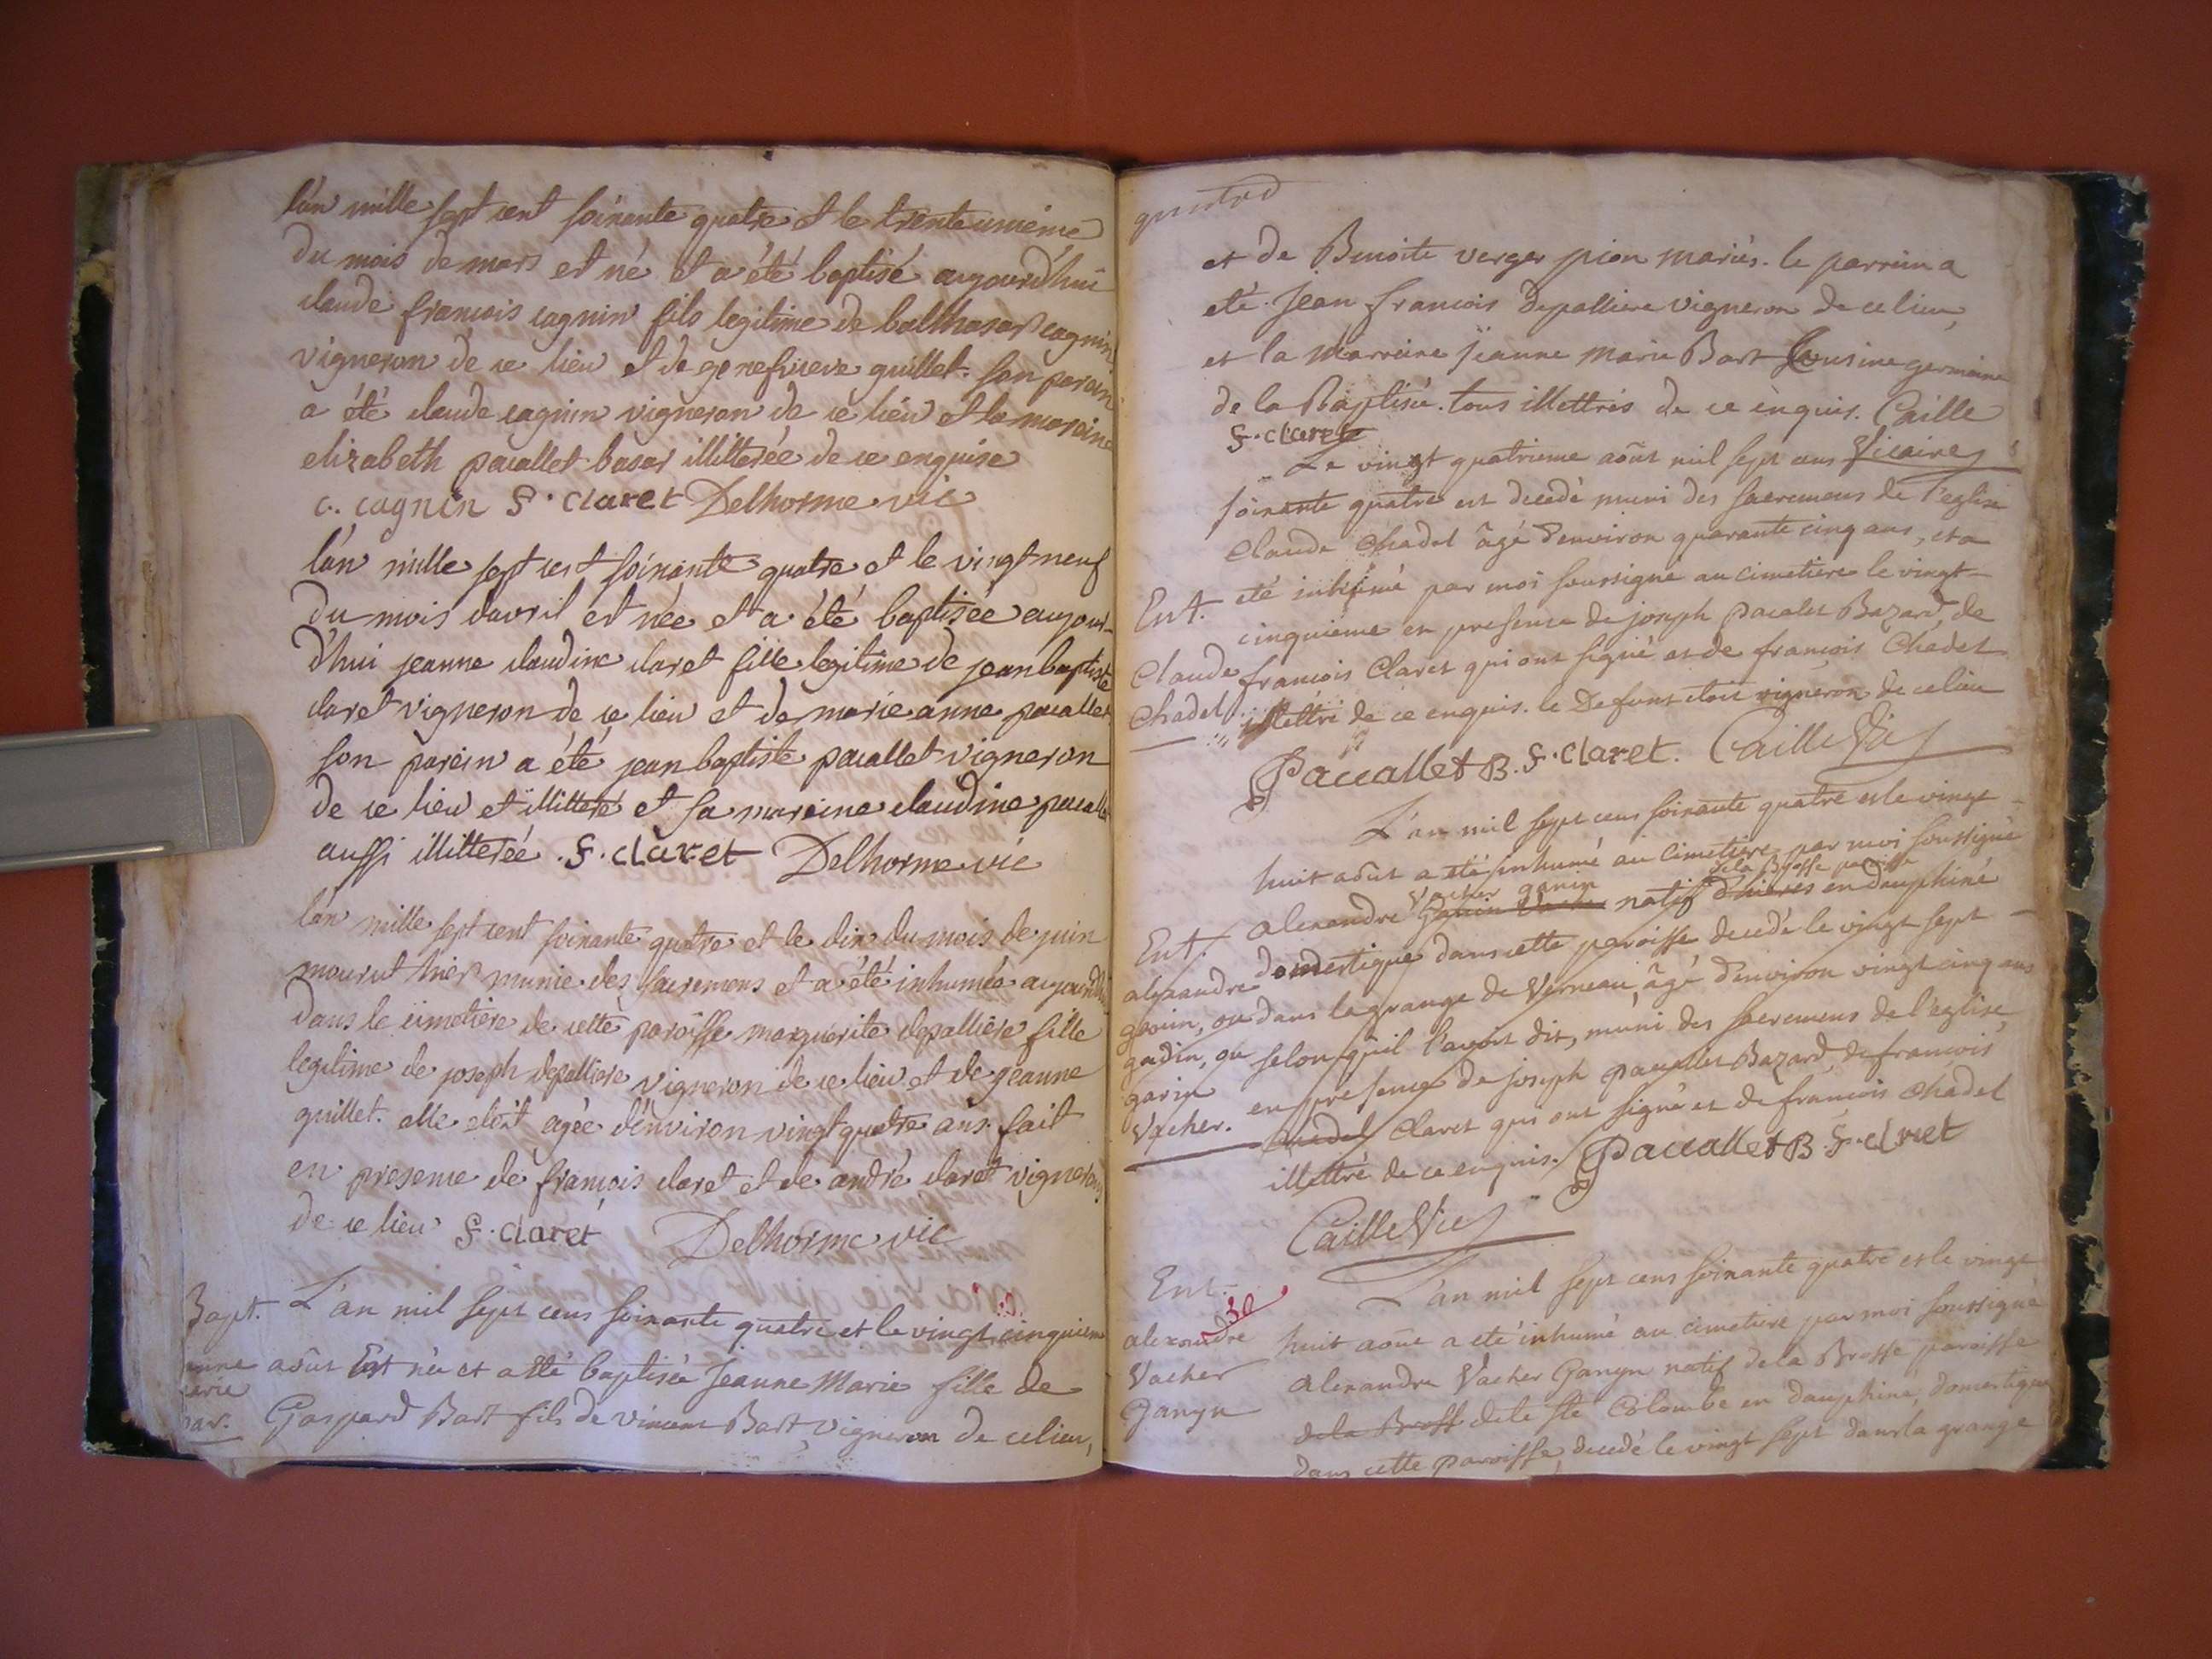 l'an mille sept cent soixante quatre et le trente unième
du mois de mars est né et a été baptisé aujourd'hui
claude françois cagnin fils legitime de balthasar cagnin
vigneron de ce lieu et de genefvieve guillet. son parain
a été claude cagnin vigneron de ce lieu et la maraine
elizabeth pacallet basar illitterée de ce enquise
c. cagnin F. claret Delhorme vic
l'an mille sept cent soixante quatre et le vingt neuf
du mois d'avril est née et a été baptisée aujour-
d'hui jeanne claudine claret fille legitime de jean baptiste
claret vigneron de ce lieu et de marie anne pacallet
son parein a été jean baptiste pacallet vigneron
de ce lieu et illitteré et sa maraine claudine pacallet
aussi illitterée. F. claret Delhorme vic
l'an mille sept cent soixante quatre et le dix du mois de juin
mourut hier munie des sacremens et a été inhumée aujourd'hui
dans le cimetière de cette paroisse marguerite depallière fille
legitime de joseph depalliere vigneron de ce lieu et de jeanne
guillet. elle etoit agée d'environ vingt quatre ans. fait
en presence de françois claret et de andré claret vignerons
de ce lieu F. claret Delhorme vic
Bapt.
L'an mil sept cens soixante quatre et le vingt cinquieme
aoûst Est née et a été baptisée Jeanne Marie fille de
Gaspard Bart fils de vincent Bart vigneron de ce lieu,
et de Benoite verger pion mariés. le parrein a
eté jean francois depalliere vigneron de ce lieu,
et la Marreine jeanne marie Bart Cousine germaine
de la Baptisée. tous illettrés de ce enquis. Caille
F. claret
Vicaire
Le vingt quatrieme aoûst mil sept cens
soixante quatre est decedé muni des sacremens de l'eglise
Claude Chadel âgé d'environ quarante cinq ans, et a
Ent.
eté inhumé par moi soussigné au cimetiere le vingt-
cinquieme en presence de joseph Pacalet Bazard, de
Claude
francois Claret qui ont signé et de francois Chadel
Chadel
illettré de ce enquis. le Defunt etoit vigneron de ce lieu
Paccallet B. F. claret. Caille Vic
L'an mil sept cens soixante quatre et le vingt-
huit aoûst a eté inhumé au cimetiere par moi soussigné
Vacher ganin
de la Brosse paroisse
alexandre natif d'hieres en dauphiné
Ent.
domestique dans cette paroisse decedé le vingt sept
alexandre
dans la grange de Verneau, âgé d'environ vingt cinq ans
selon qu'il l'avoit dit, muni des sacremens de l'eglise,
garin
en presence de joseph pacallet Bazard, de francois
Vacher.
chadel Claret qui ont signé et de francois Chadel
illettré de ce enquis. Paccallet B F. claret
Caille Vic
Ent.
30
L'an mil sept cens soixante quatre et le vingt
alexandre
huit aoust a eté inhumé au cimetiere par moi soussigné
Vacher
alexandre Vacher Ganyn natif de la Brosse paroisse
Ganyn
de la Bross de la ste Colombe en dauphiné, domestique
dans cette paroisse, decedé le vingt sept dans la grange